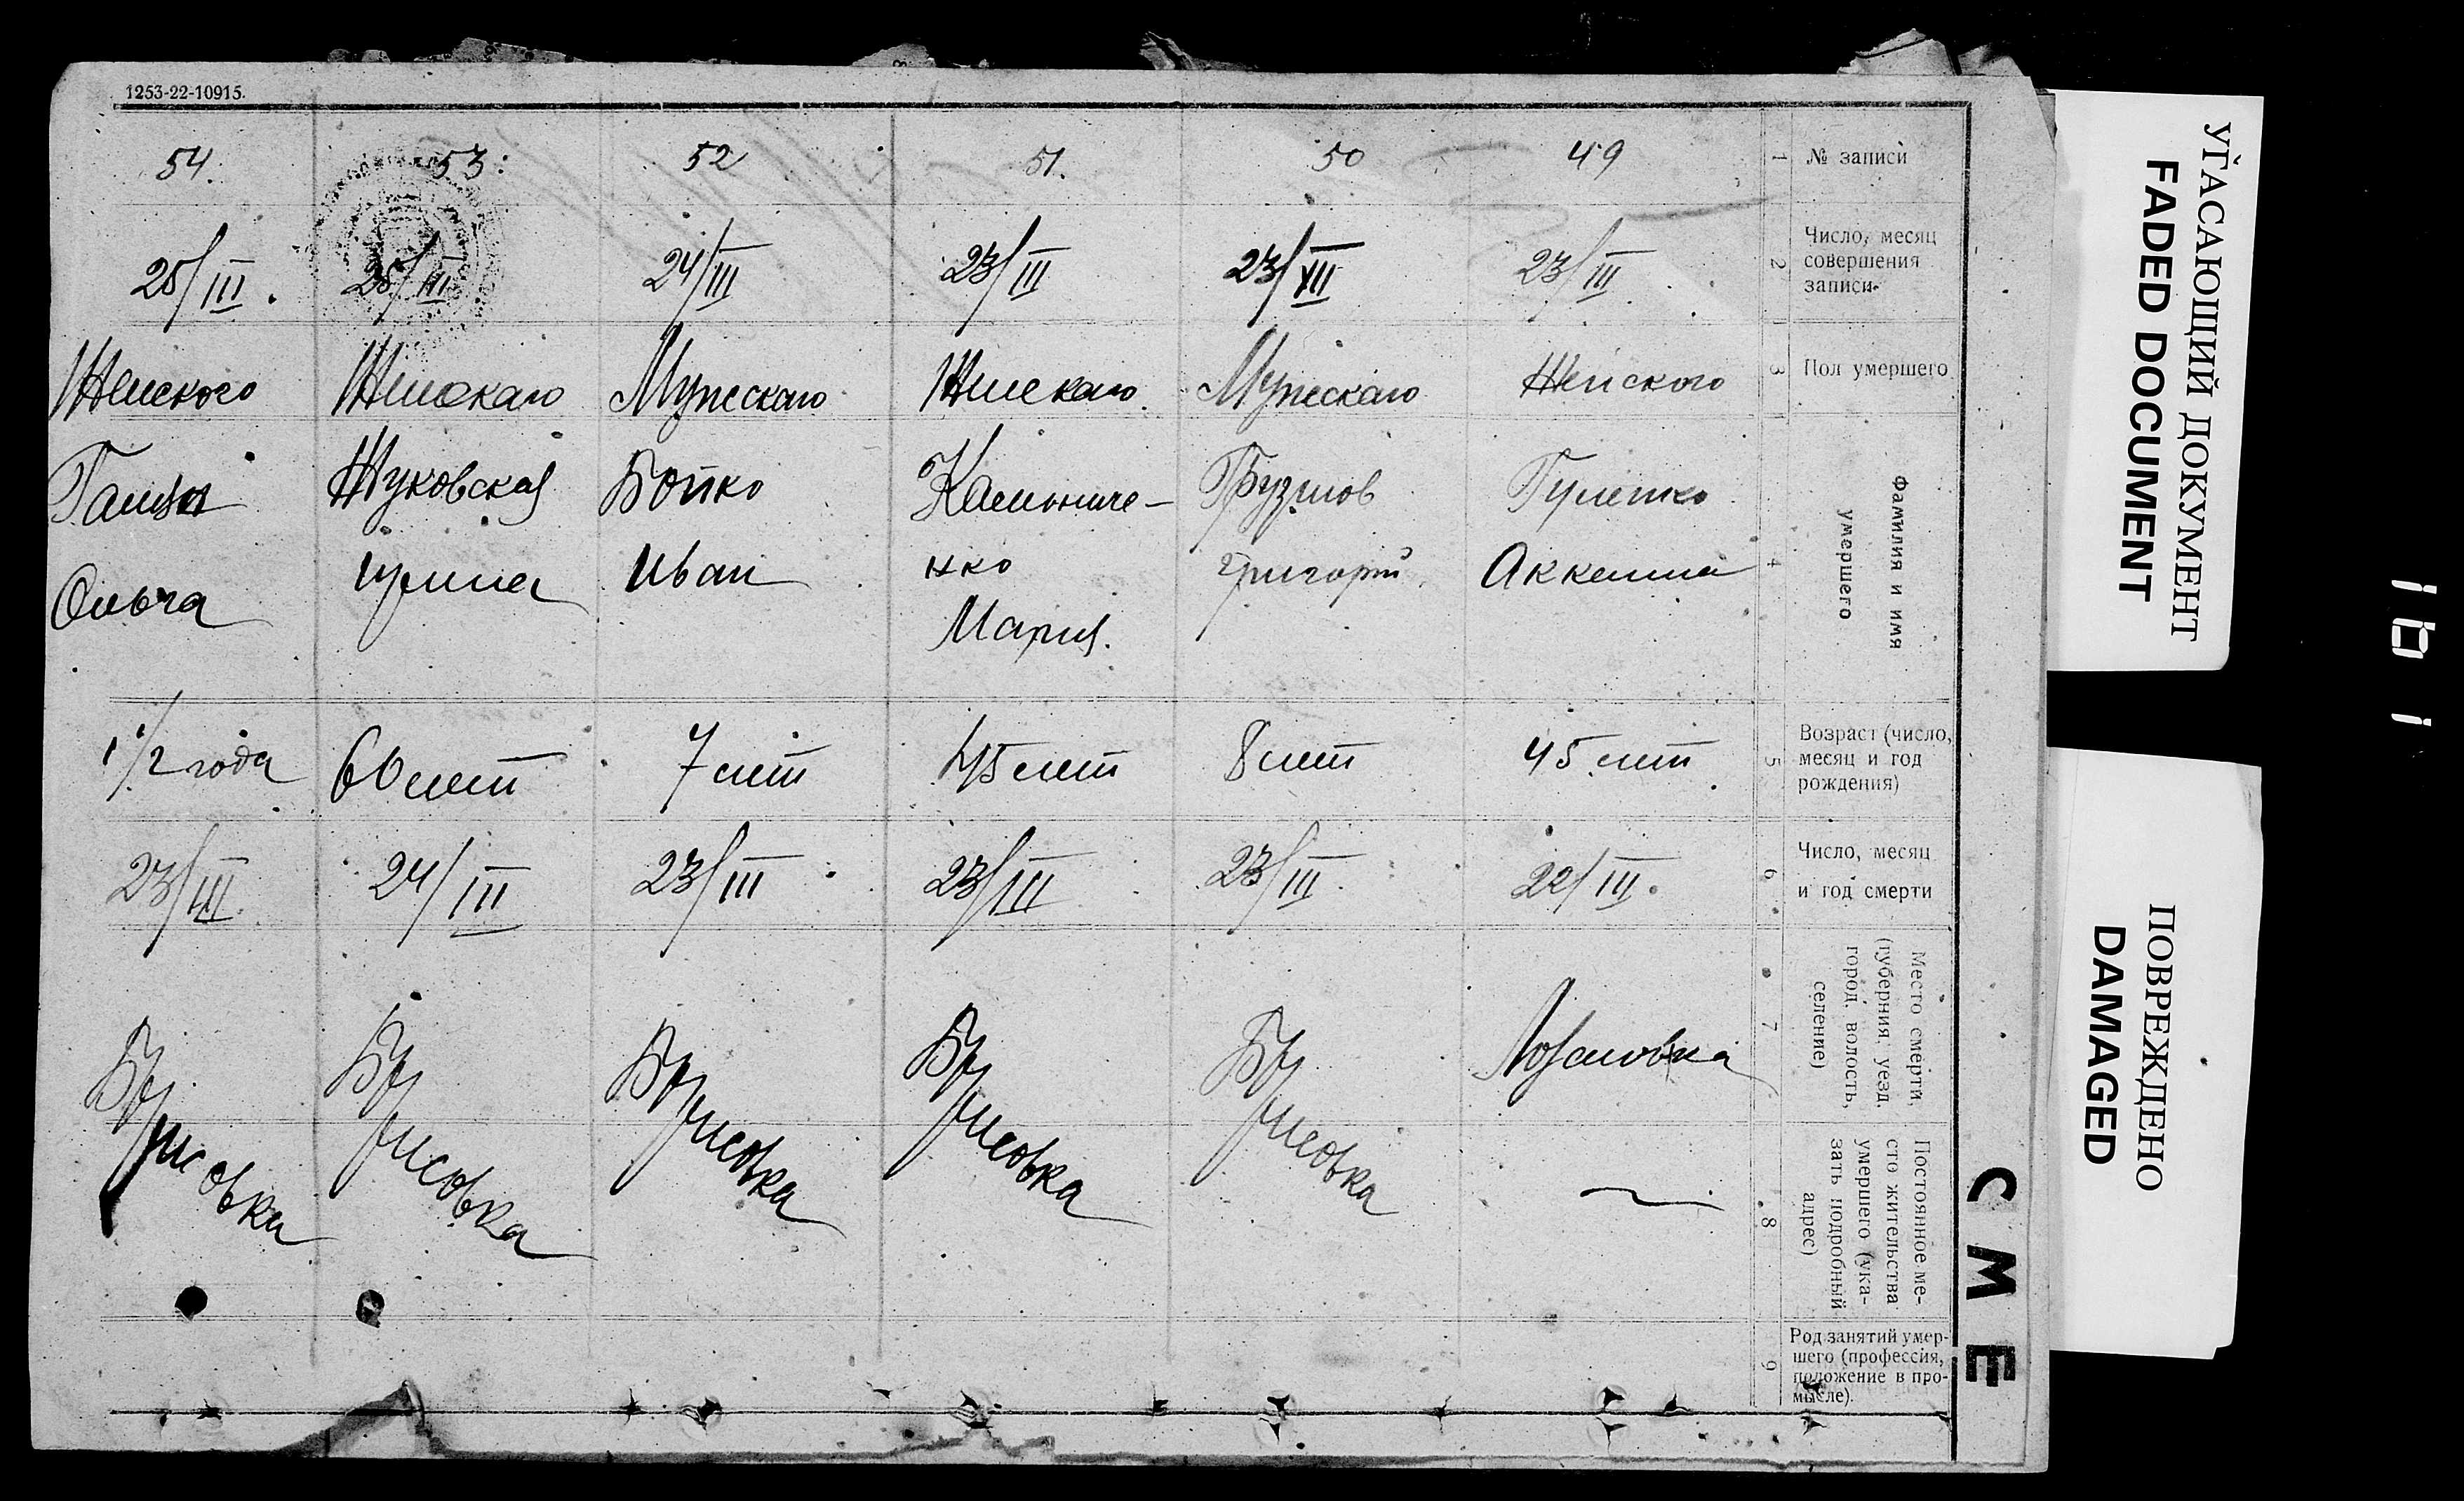 1253-22-10915.
54.
53.
52
51.
50
49
1
№ записи
25/III.
25/III
24/III
23/III
23/III
23/III
2
Число, месяц
совершения
записи-
Женского
Женскаго
Мужескаго
Женскаго
Мужескаго
Женского
3
Пол умершего
Ольга
Жуковская
Бойко
Иван
нко
Мария.
Григорий
4
Фамилия и имя
умершего
1 1/2 года
60 лет
7 лет
45 лет
8 лет
45 лет
5
Возраст (число,
месяц и год
рождения)
23/III
24/III
23/III
23/III
23/III
22/III.
6
Число, месяц
и год смерти
рисовка
рисовка
рисовка
рисовка
рисовка
7
Место смерти,
(губерния, уезд,
город, волость,
селение)
8
Постоянное ме-
сто жительства
умершего (ука-
зать подробный
адрес)
9
Род занятий умер-
шего (профессия,
положение в про-
мысле).
СМЕ
УГАСАЮЩИЙ ДОКУМЕНТ
FADED DOCUMENT
ПОВРЕЖДЕНО
DAMAGED